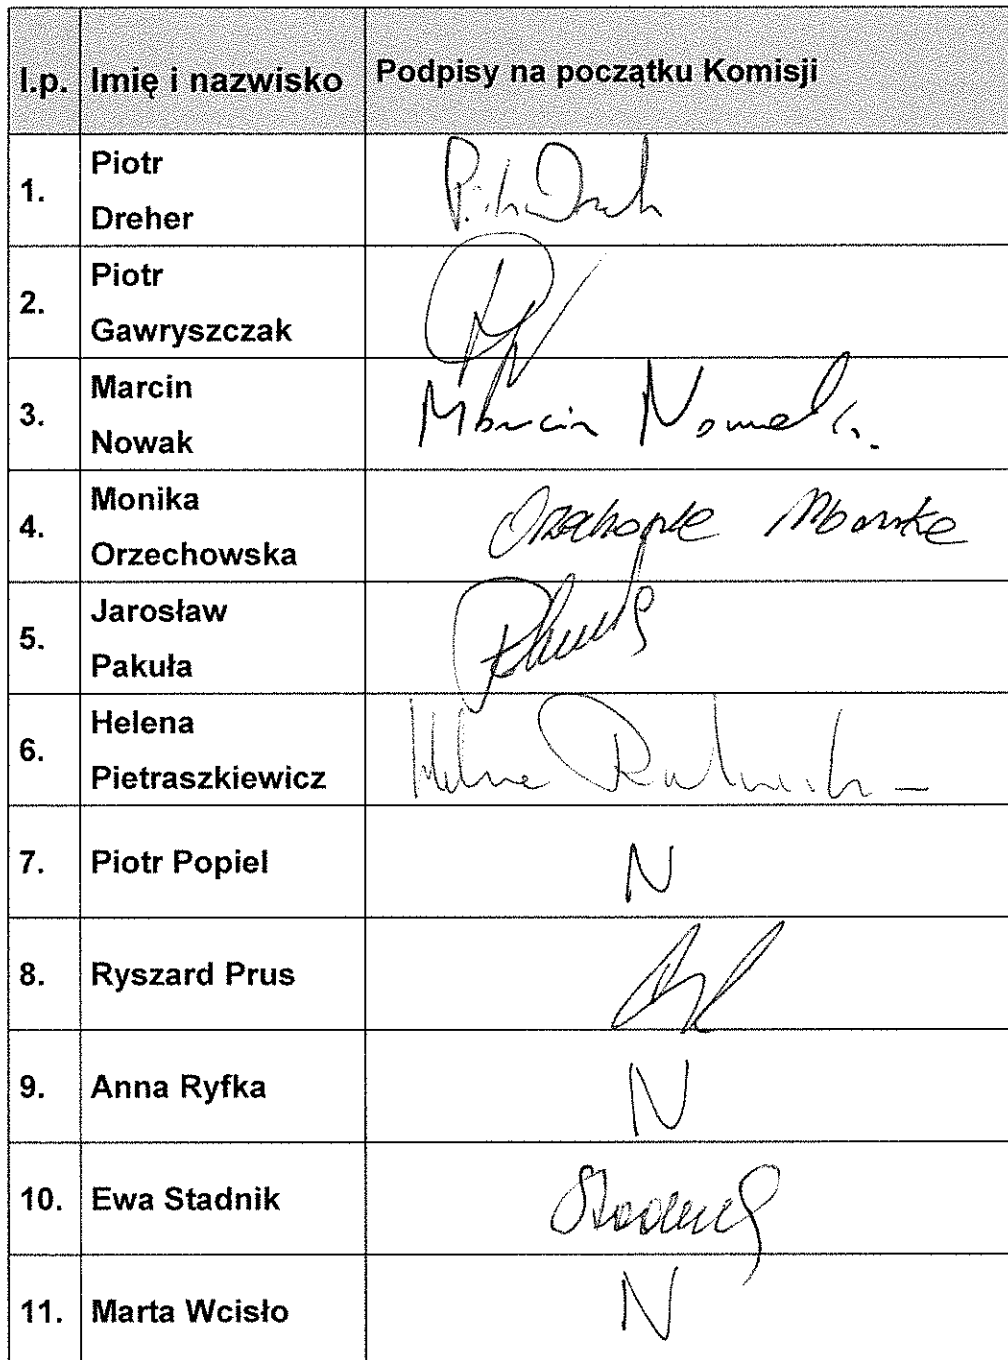 l.p. Imię i nazwisko Podpisy na początku Komisji
1. Piotr
Dreher
2. Piotr
Gawryszczak
3. Marcin
Nowak
Marcin Nowak
4. Monika
Orzechowska
5. Jarosław
Pakuła
6. Helena
Pietraszkiewicz
7. Piotr Popiel N
8. Ryszard Prus
9. Anna Ryfka N
10. Ewa Stadnik
11. Marta Wcisło N